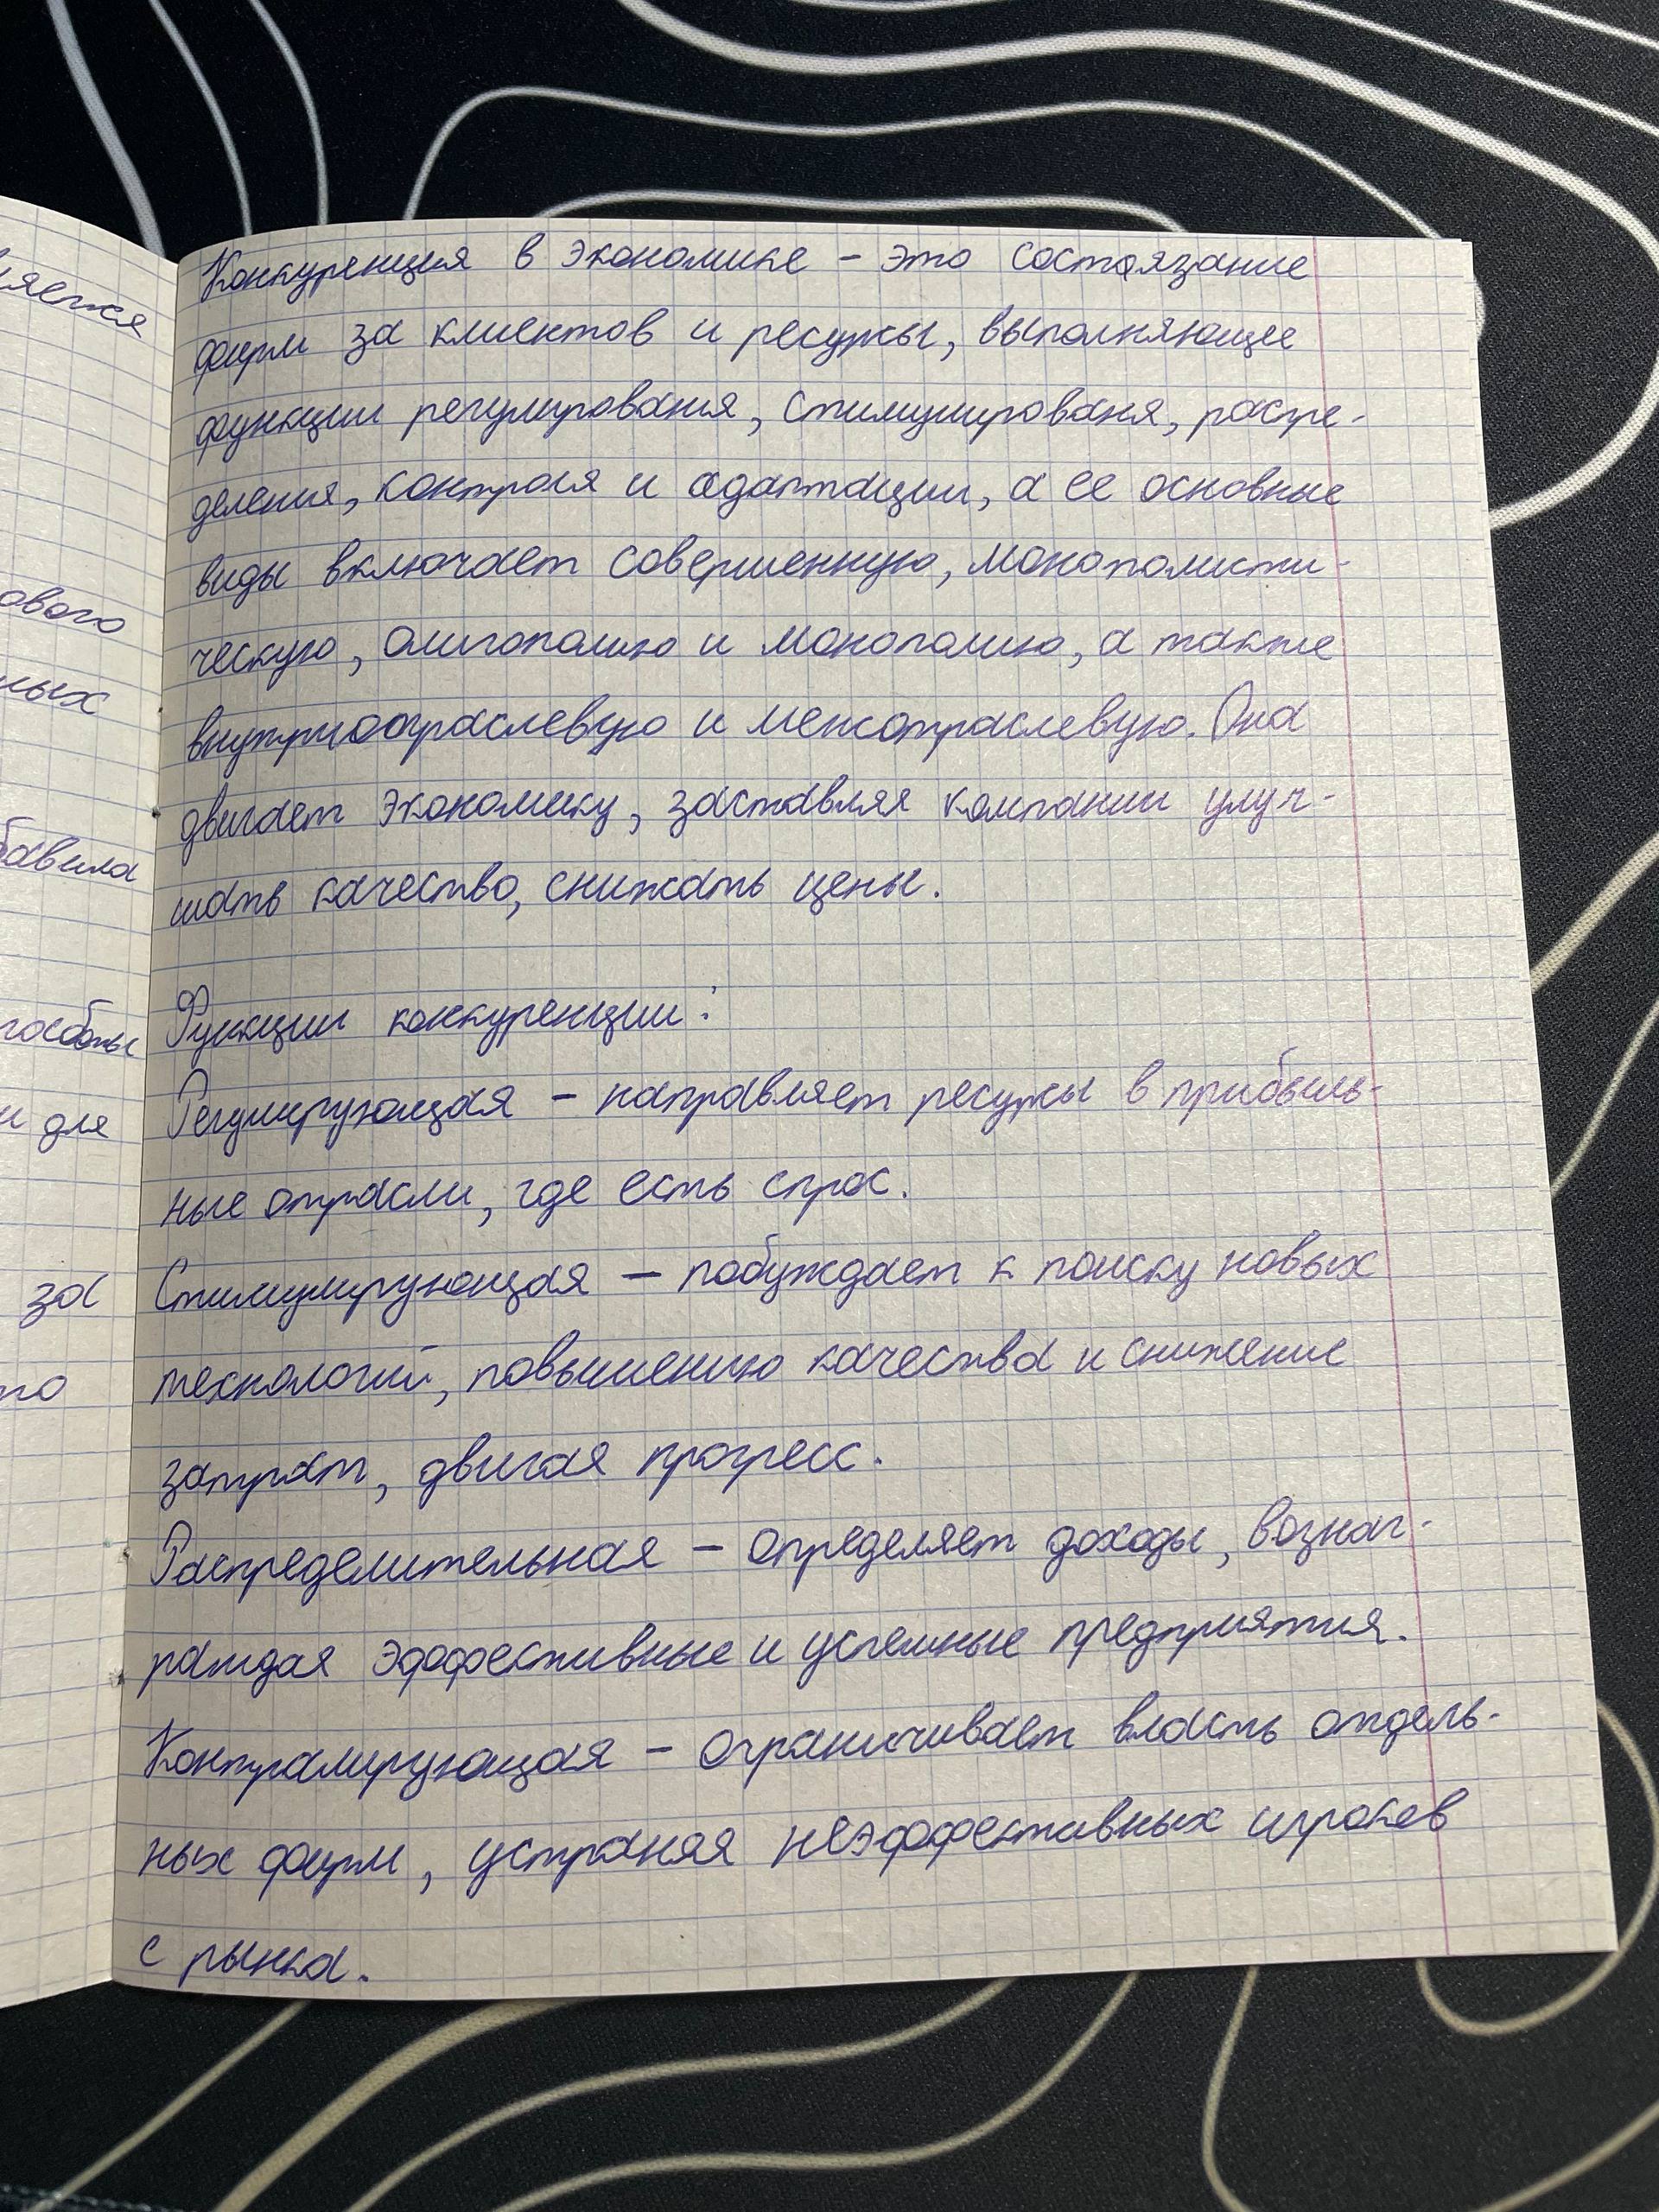 яется
ового
ных
бавила
пособы
и для
за
то
Конкуренция в экономике - это состязание
фирм за клиентов и ресурсы, выполняющее
функции регулирования, стимулированя, распре-
деления, контроля и адаптации, а ее основные
виды включает совершенную, монополисти-
ческую, олигополию и монополию, а также
внутриотраслевую и межотраслевую. Она
двигает экономику, заставляя компании улуч-
шать качество, снижать цены.
Функции конкуренции:
Регулирующая - направляет ресурсы в прибыль-
ные отрасли, где есть спрос.
Стимулирующая — побуждает к поиску новых
технологий, повышению качества и снижение
затрат, двигая прогресс.
Распределительная - определяет доходы, вознаг-
раждая эффективные и успешные предприятия.
Контролирующая - ограничивает власть отдель-
ных фирм, устраняя неэффективных игроков
с рынка.